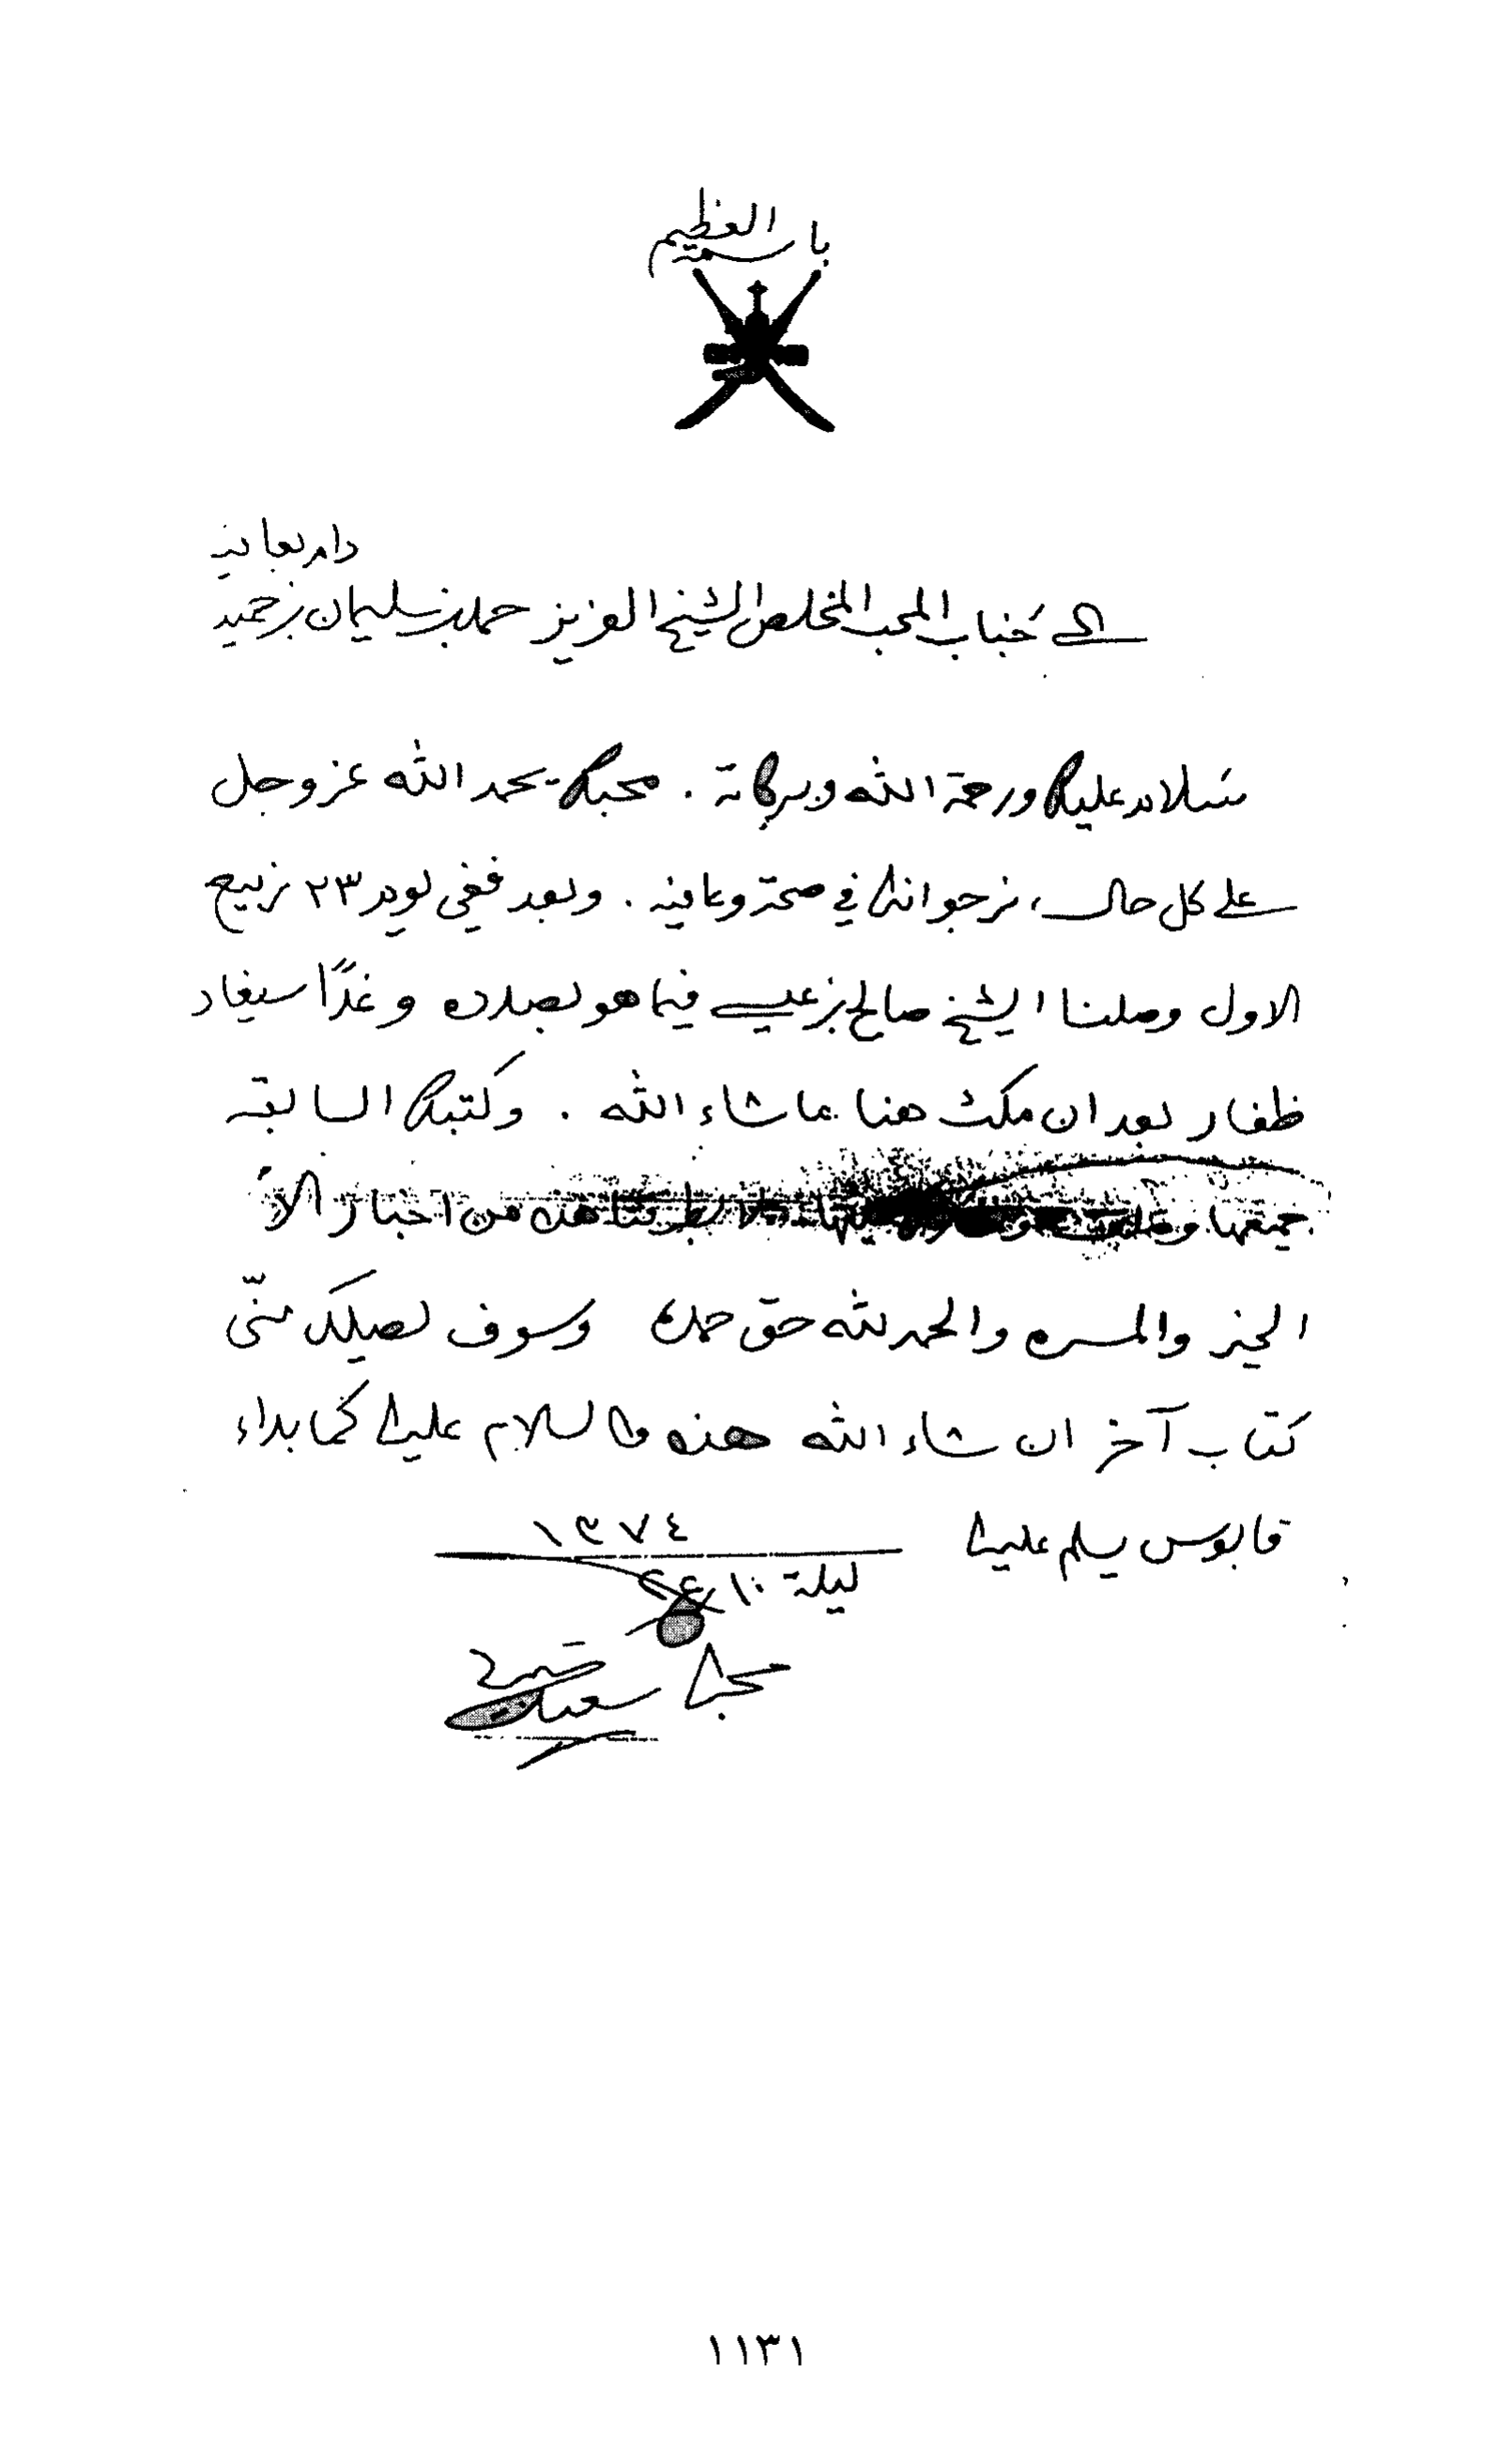 باسمه العظيم
دام بعافية
الى جناب المحب المخلص الشيخ العزيز حمد بن سليمان بن حميد
سلام عليكم ورحمة الله وبركاته . محبكم يحمد الله عز وجل
على كل حال، نرجو انك في صحة وعافيه . وبعد ففي يوم ٢٣ ربيع
الاول وصلنا الشيخ صالح بن عيسى فيما هو بصدده وغدًا سيغادر
ظفار بعد ان مكث هنا ما شاء الله . وكتبكم السابقه
جميعها وصلت من اخبار الا
الخير والمسره والحمد لله حق حمده وسوف يصلك منّي
كتاب آخر ان شاء الله هذه والسلام عليك كما بداء
قابوس يسلم عليك
١٣٧٤
ليلة ١٠
محبك سعيد
١١٣١